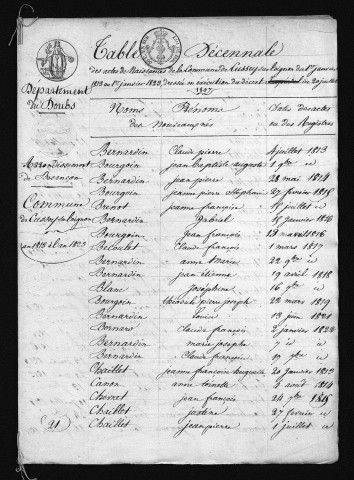 Table Décennale
des actes de Naissances de la Commune de Cussey sur l'ognon du 1er janvier
1813 au 1er janvier 1823, dressée en exécution du décret du 20 juillet
1807
Département
du Doubs
Noms Prénoms
des Nouveaux nés
Dates des actes
ou des Registres
Arrondissement
de Besançon
Commune
de Cussey sur l'ognon
an 1813 à l'an 1823
Bernardin Claude pierre 4 juillet 1813
Bourgoin jean baptiste auguste 1 9bre id
Bernardin jean pierre 28 mai 1814
Bourgoin jeanne pierre Stéphanie 27 février 1815
Brenot jeanne françoise 15 juillet id
Bernardin Gabriel 15 janvier 1816
Bourgoin jean françois 13 mars 1816
Beloulet Claude françois 1 mars 1817
Bernardin anne Marie 22 9bre id
Bernardin jean étienne 19 avril 1818
Blanc joséphine 16 9bre id
Bourgoin pierre joseph 22 mars 1819
Bernardin Louise 13 juin 1821
Bernard Claude françois 2 janvier 1822
Bernardin marie josephe 7 id id
Bernardin Claude françois 19 9bre id
Chaillet jeanne françoise huguette 20 janvier 1813
Canon anne binette 2 aout 1814
Chevret jean françois 24 9bre 1815
Chaillet justine 27 février id
Chaillet jean pierre 1 juillet id
21